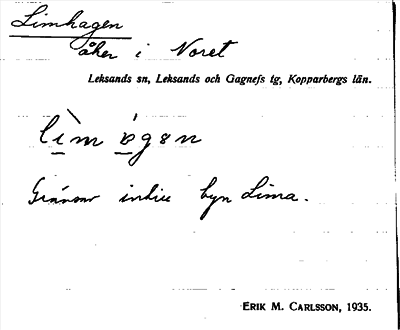 Limhagen
åker i Noret
Leksands sn, Leksands och Gagnefs tg, Kopparbergs län.
lìmágen
Gränsar indill byn Lima.
ERIK M. CARLSSON, 1935.